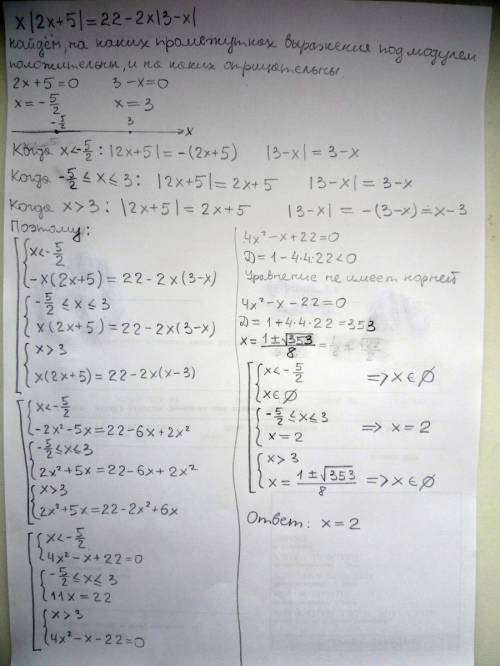 x|2x+5|=22-2x|3-x|
Найдём, на каких промежутках выражения под модулем
положительны, и на каких отрицательны.
2x+5=0 3-x=0
x=-5/2 x=3
-5/2 3 x
Когда x<-5/2: |2x+5|=-(2x+5) |3-x|=3-x
Когда -5/2≤x≤3: |2x+5|=2x+5 |3-x|=3-x
Когда x>3: |2x+5|=2x+5 |3-x|=-(3-x)=x-3
Поэтому:
x<-5/2
-x(2x+5)=22-2x(3-x)
-5/2≤x≤3
x(2x+5)=22-2x(3-x)
x>3
x(2x+5)=22-2x(x-3)
x<-5/2
-2x²-5x=22-6x+2x²
-5/2≤x≤3
2x²+5x=22-6x+2x²
x>3
2x²+5x=22-2x²+6x
x<-5/2
4x²-x+22=0
-5/2≤x≤3
11x=22
x>3
4x²-x-22=0
4x²-x+22=0
D=1-4·4·22<0
Уравнение не имеет корней
4x²-x-22=0
D=1+4·4·22=353
x=(1±√353)/8
x<-5/2
x∈∅ =>x∈∅
-5/2≤x≤3
x=2 =>x=2
x>3
x=(1±√353)/8 =>x∈∅
Ответ: x=2